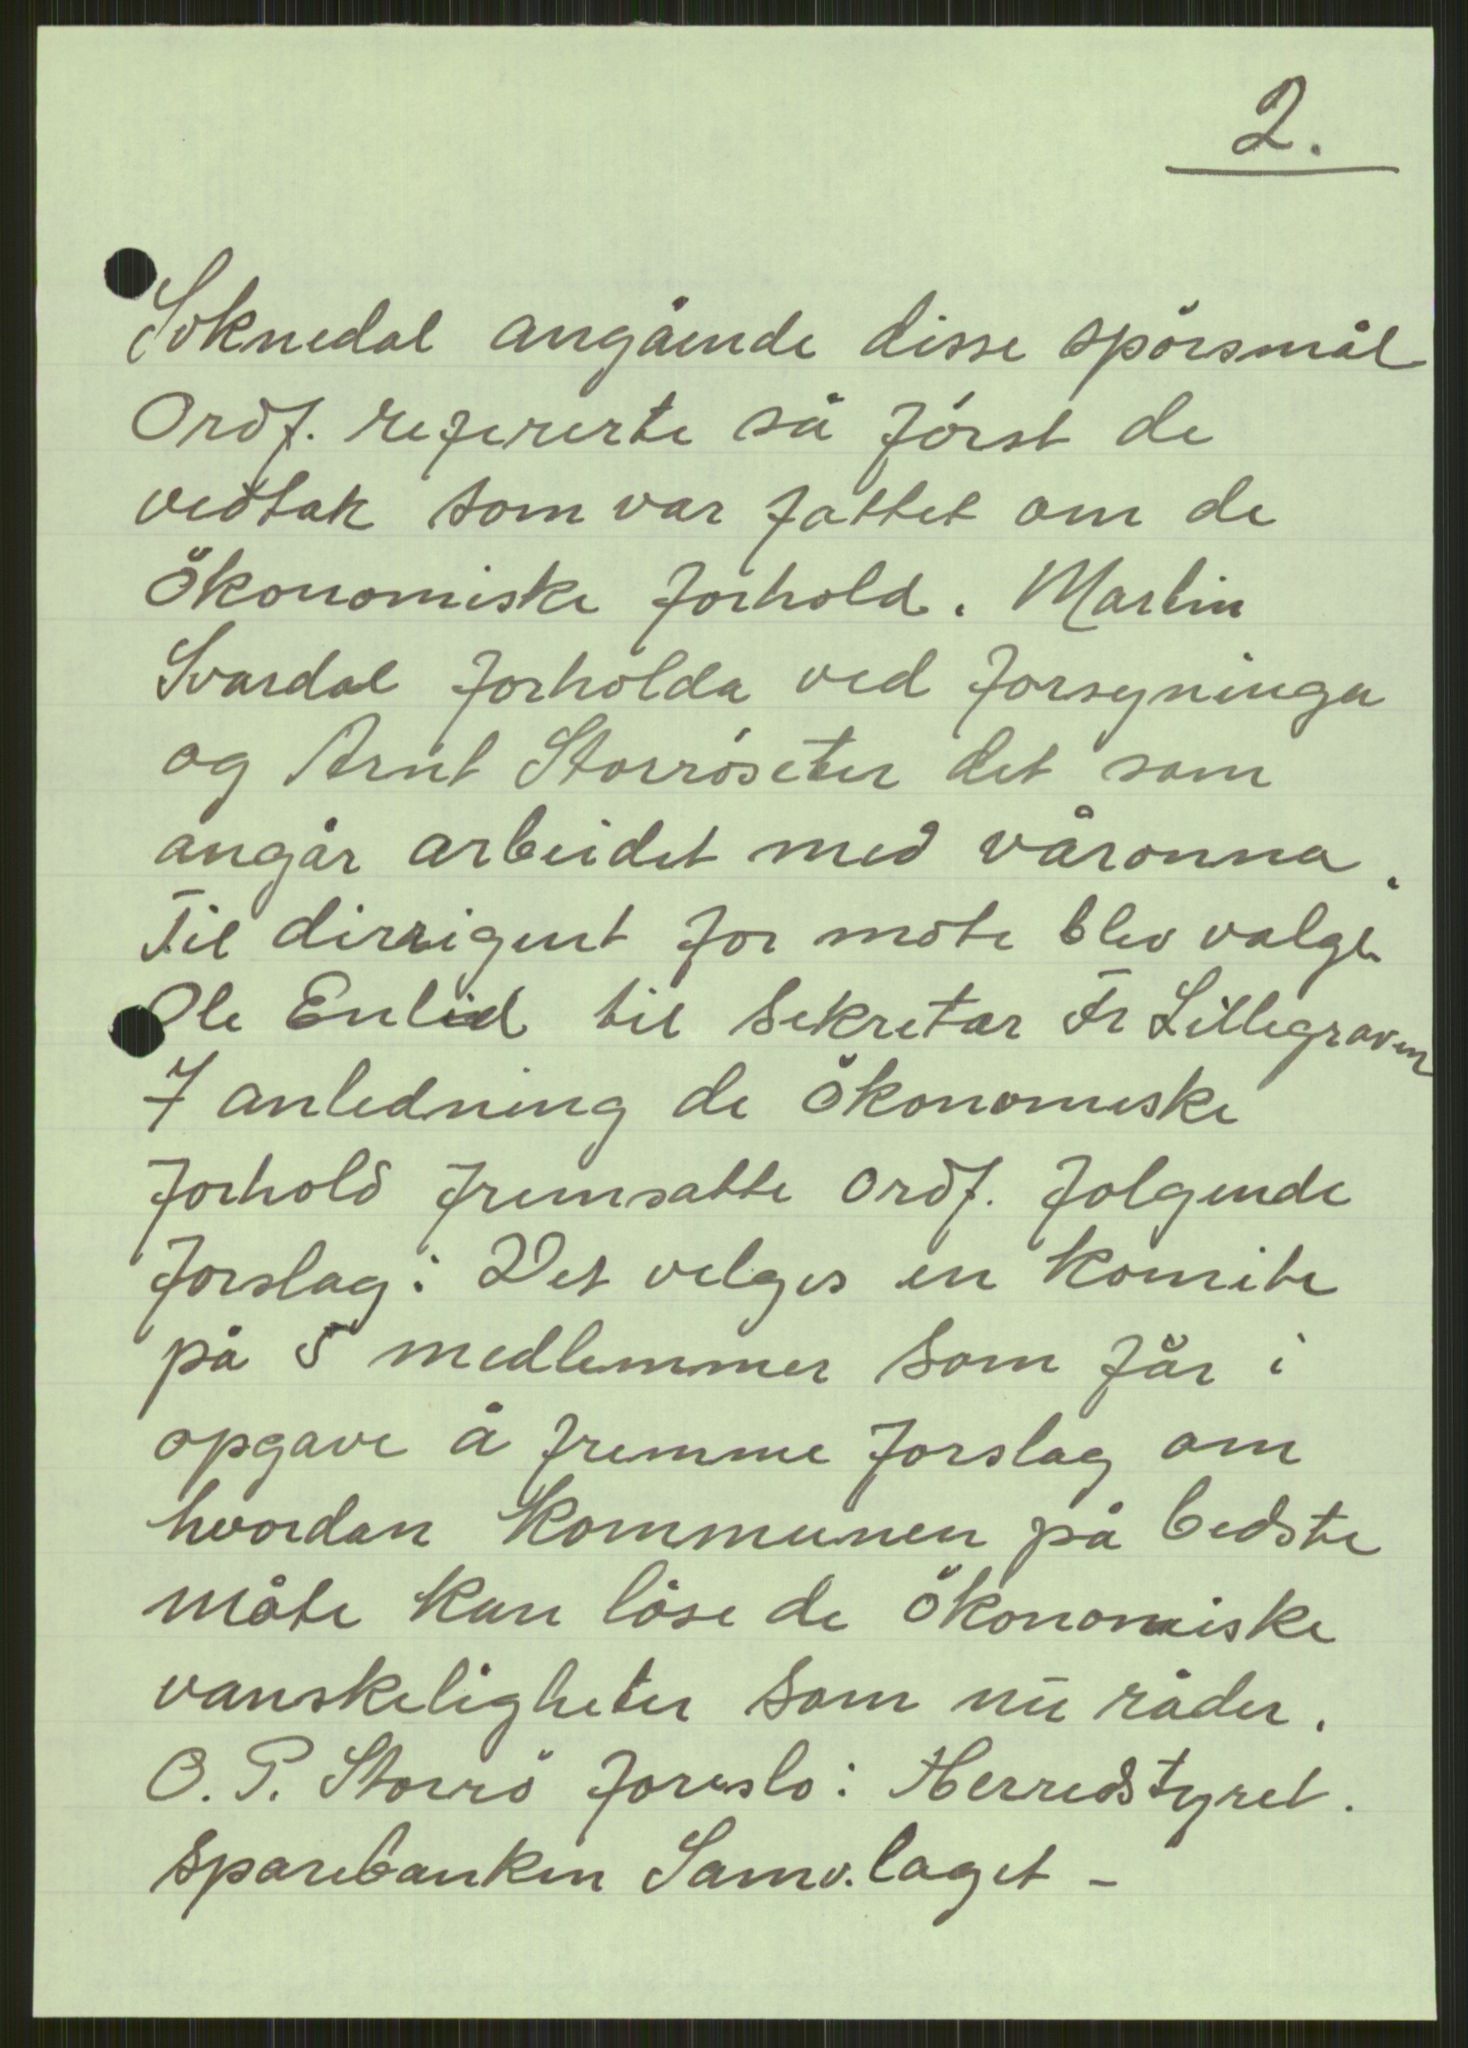 2.
Soknedal angående disse spörsmål
Ordf. refererte så först de
vedtak som var fattet om de
ökonomiske forhold. Martin
Svardal forholda ved forsyninga
og Arnt Storröseter det som
angår arbeidet med våronna.
Til dirrigent for möte blev valgt
Ole Enlid til sekretær Fr Lillegraven
I anledning de ökonomiske
forhold fremsatte ordf. folgende
forslag: Det velges en komite
på 5 medlemmer som får i
opgave å fremme forslag om
hvordan kommunen på bedste
måte kan löse de ökonomiske
vanskeligheter som nu råder.
O. P. Storrö foreslo: Herredstyret.
sparebanken Samv.laget –